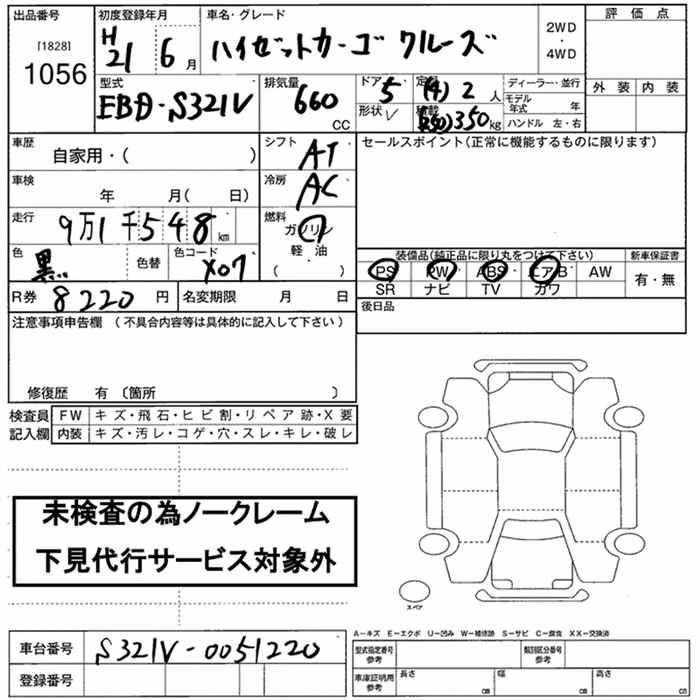 出品番号 初度登録年月 車名・グレード 2WD ・ 4WD 評価点
［1828］ 1056 H21 6月 ハイゼットカーゴ クルーズ 外装 内装
型式 排気量 ドア 5 定員 (4) 2人 ディーラー・並行
EBD-S321V 660 CC 形状 V 積載 (250) 350kg モデル年式 年
ハンドル 左・右
車歴 自家用・( ) シフト AT セールスポイント(正常に機能するものに限ります)
車検 年 月( 日) 冷房 AC
走行 9万1千548km 燃料 ガソリン・軽油・( )
色 黒 色替 色コード X07
装備品(純正品に限り丸をつけて下さい) 新車保証書
PS PW ABS エアB AW 有・無
SR ナビ TV カワ
R券 8220円 名変期限 月 日 後日品
注意事項申告欄 (不具合内容等は具体的に記入して下さい)
修復歴 有 〔箇所 〕
検査員記入欄 FW キズ・飛石・ヒビ割・リペア跡・X要
内装 キズ・汚レ・コゲ・穴・スレ・キレ・破レ
未検査の為ノークレーム
下見代行サービス対象外
スペア
A-キズ E-エクボ U-凹み W-補修跡 S-サビ C-腐食 XX-交換済
車台番号 S321V-0051220 型式指定番号 参考 類別区分番号 参考
登録番号 車庫証明用 参考 長さ cm 幅 cm 高さ cm